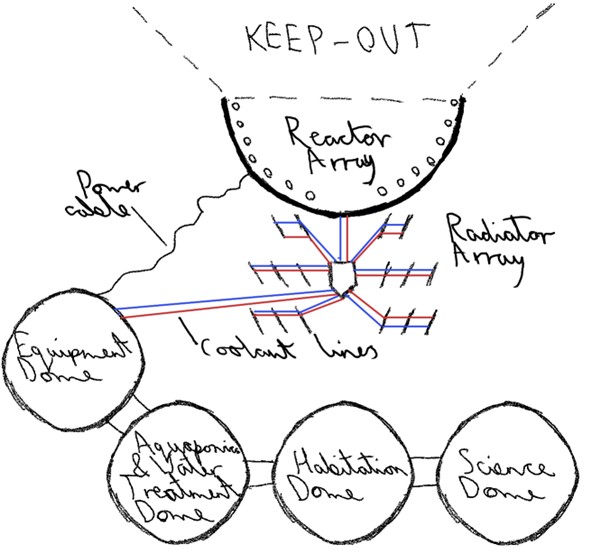 KEEP-OUT
Reactor
Array
Power
cable
Radiator
Array
Coolant lines
Equipment
Dome
Aquaponics
& Water
Treatment
Dome
Habitation
Dome
Science
Dome